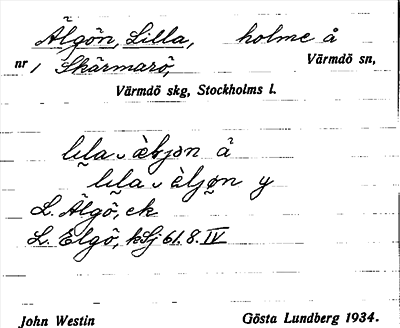 Älgön, Lilla, holme å
nr 1 Skärmarö, Värmdö sn,
Värmdö skg, Stockholms l.
L. Älgö, ek
L. Elgö, kSj 61.8.IV
John Westin Gösta Lundberg 1934.